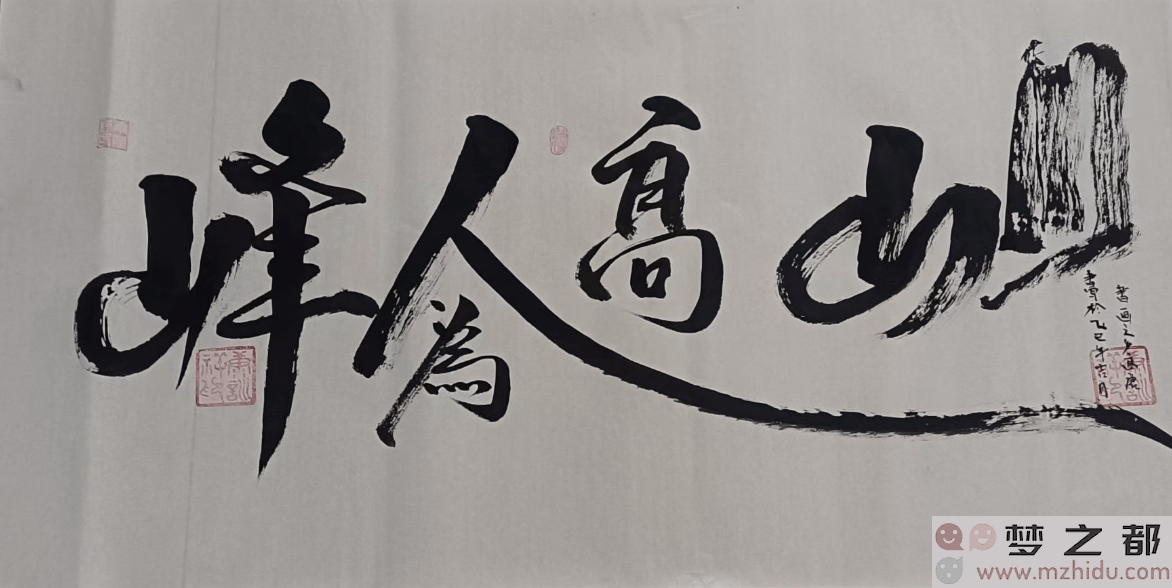 山高人為峰
書画之
於乙巳年吉月
梦之都
www.mzhidu.com